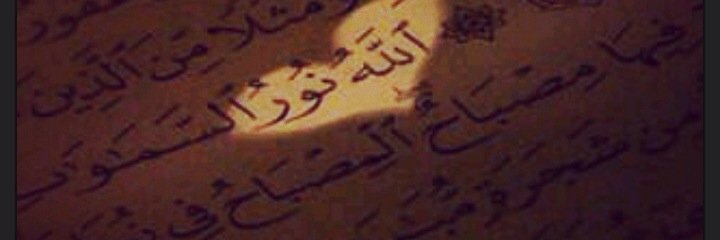 غَفُورٌ
مَثَلًا مِّنَ ٱلَّذِينَ
ٱللَّهُ نُورُ ٱلسَّمَٰوَٰتِ
فِيهَا مِصْبَاحٌ ٱلْمِصْبَاحُ فِى
مِن شَجَرَةٍ